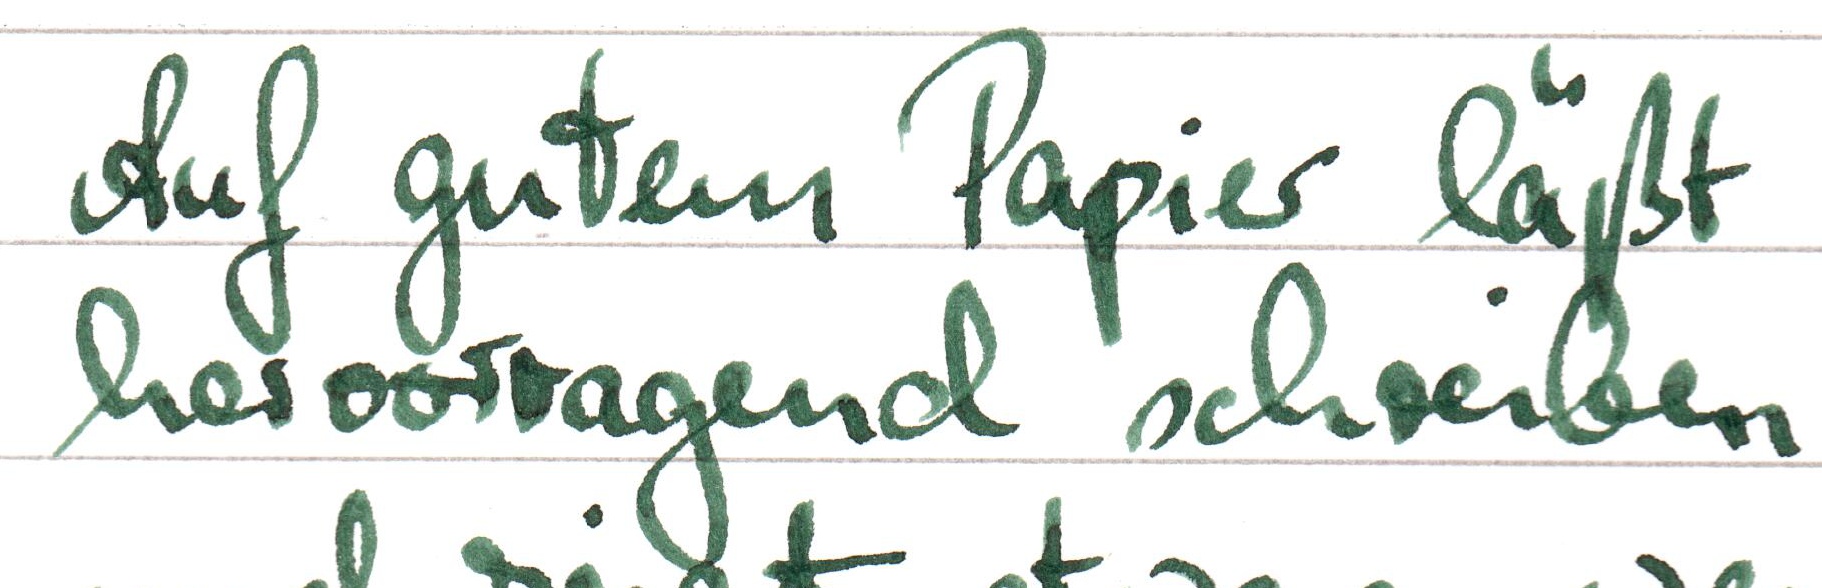 Auf gutem Papier läßt
hervorragend schreiben